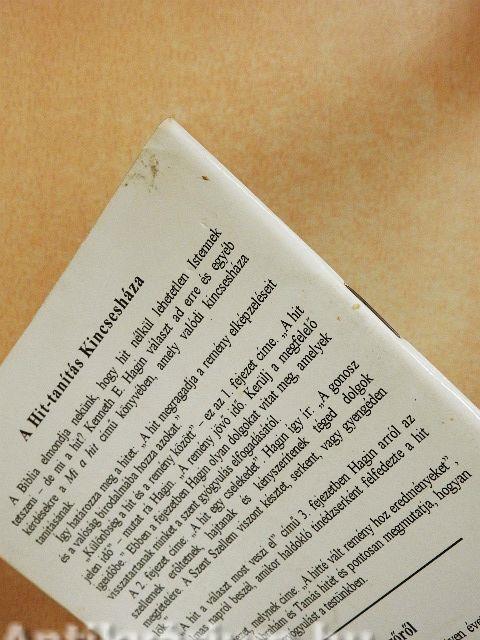 A Hit-tanítás Kincsesháza
A Biblia elmondja nekünk, hogy hit nélkül lehetetlen Istennek
tetszeni – de mi a hit? Kenneth E. Hagin választ ad erre és egyéb
kérdésekre a Mi a hit című könyvében, amely valódi kincsesháza
tanításának.
Így határozza meg a hitet: „A hit megragadja a remény elképzeléseit
és a valóság birodalmába hozza azokat."
„Különbség a hit és a remény között" – ez az 1. fejezet címe. „A hit
jelen idő" – mutat rá Hagin. „A remény jövő idő. Kerülj a megfelelő
igeidőbe." Ebben a fejezetben Hagin olyan dolgokat vitat meg, amelyek
visszatartanak minket a szent gyógyulás elfogadásától.
A 2. fejezet címe: „A hit egy cselekedet". Hagin így ír: „A gonosz
szellemek erőltetnek, hajtanak és kényszerítenek téged dolgok
megtételére. A Szent Szellem viszont késztet, serkent, vagy gyengéden
A hit a választ most veszi el" című 3. fejezetben Hagin arról az
napról beszél, amikor haldokló tinédzserként felfedezte a hit
melynek címe: „A hitté vált remény hoz eredményeket",
és Tamás hitét és pontosan megmutatja, hogyan
a testünkben.